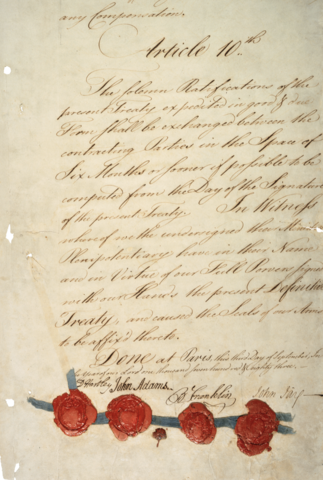 any Compensation.
Article 10th
The solemn Ratifications of the
present Treaty expedited in good & due
Form shall be exchanged between the
contracting Parties in the Space of
Six Months or sooner if possible to be
computed from the Day of the Signature
of the present Treaty. In Witness
whereof we the undersigned their Ministers
Plenipotentiary have in their Name
and in Virtue of our Full Powers signed
with our Hands the present Definitive
Treaty, and caused the Seals of our Arms
to be affix'd thereto.
Done at Paris, this third Day of September, In the
Year of our Lord one thousand seven hundred & eighty three.
D Hartley John Adams. B Franklin John Jay